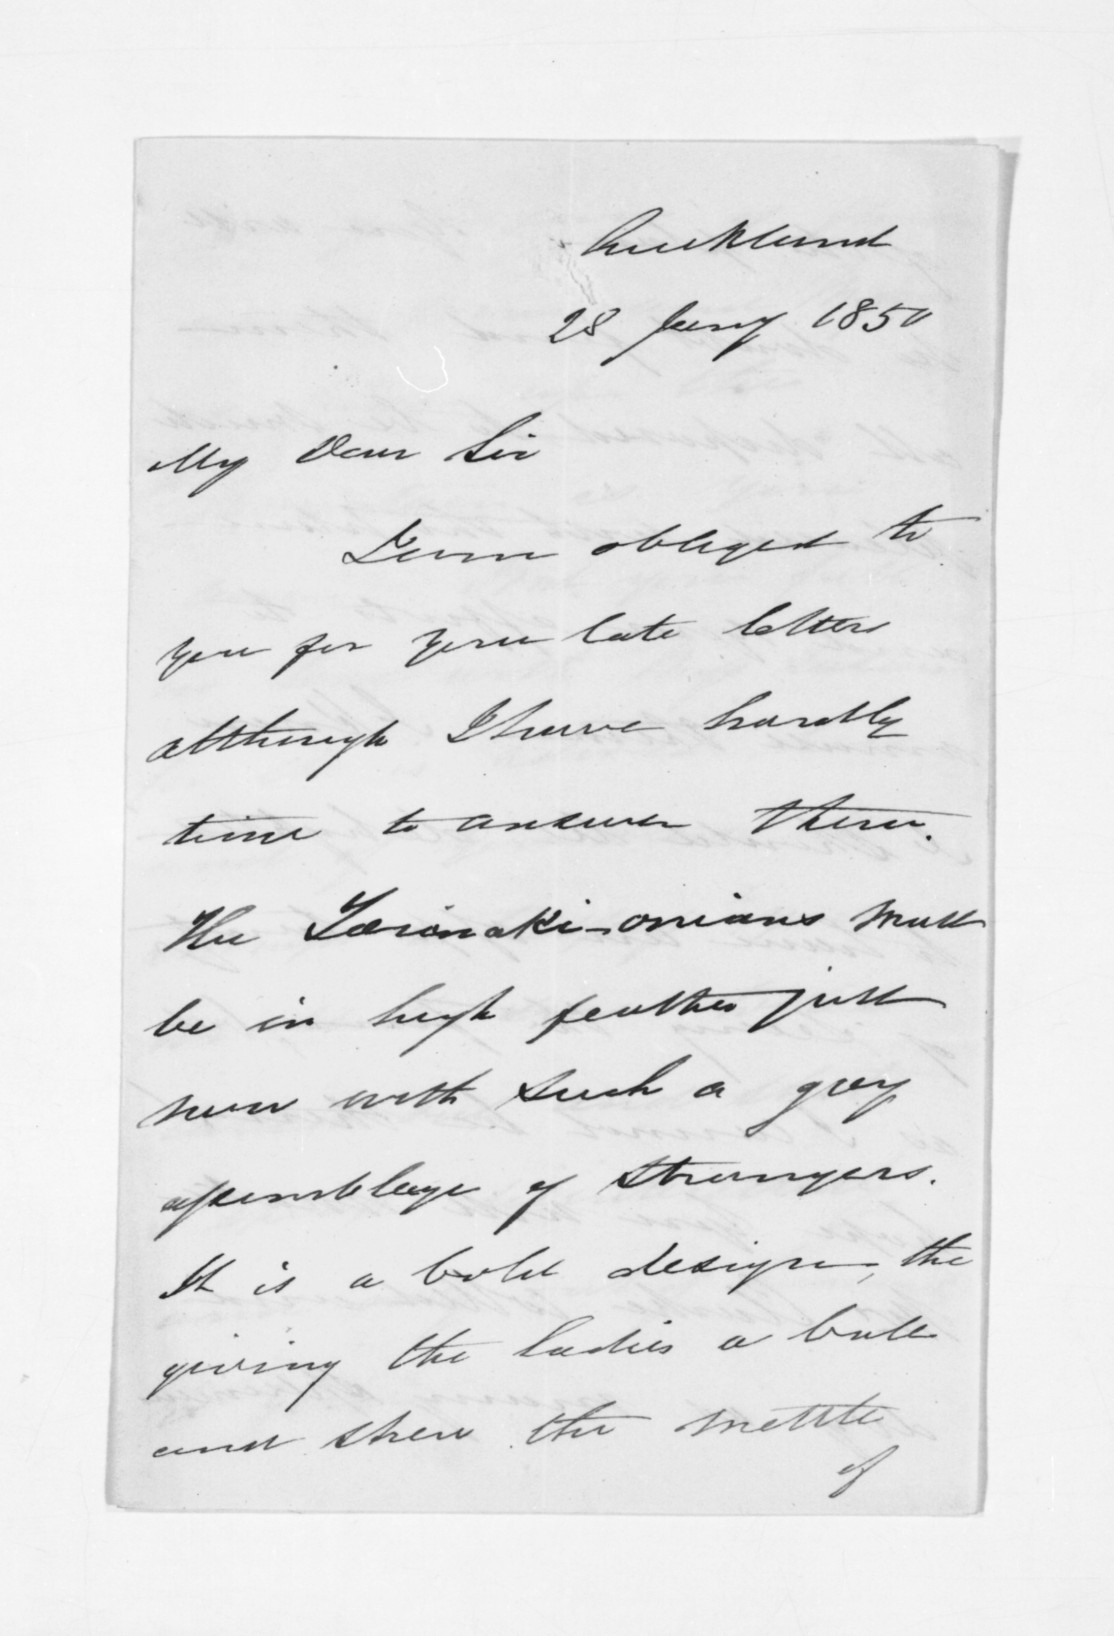 Auckland
28 Jany 1850
My Dear Sir
I am obliged to
you for your late letters
although I have hardly
time to answer them.
The Taranaki-onians must
be in high feather just
now with such a gay
assemblage of strangers.
It is a bold design, the
giving the ladies a ball
and shew the mettle
of